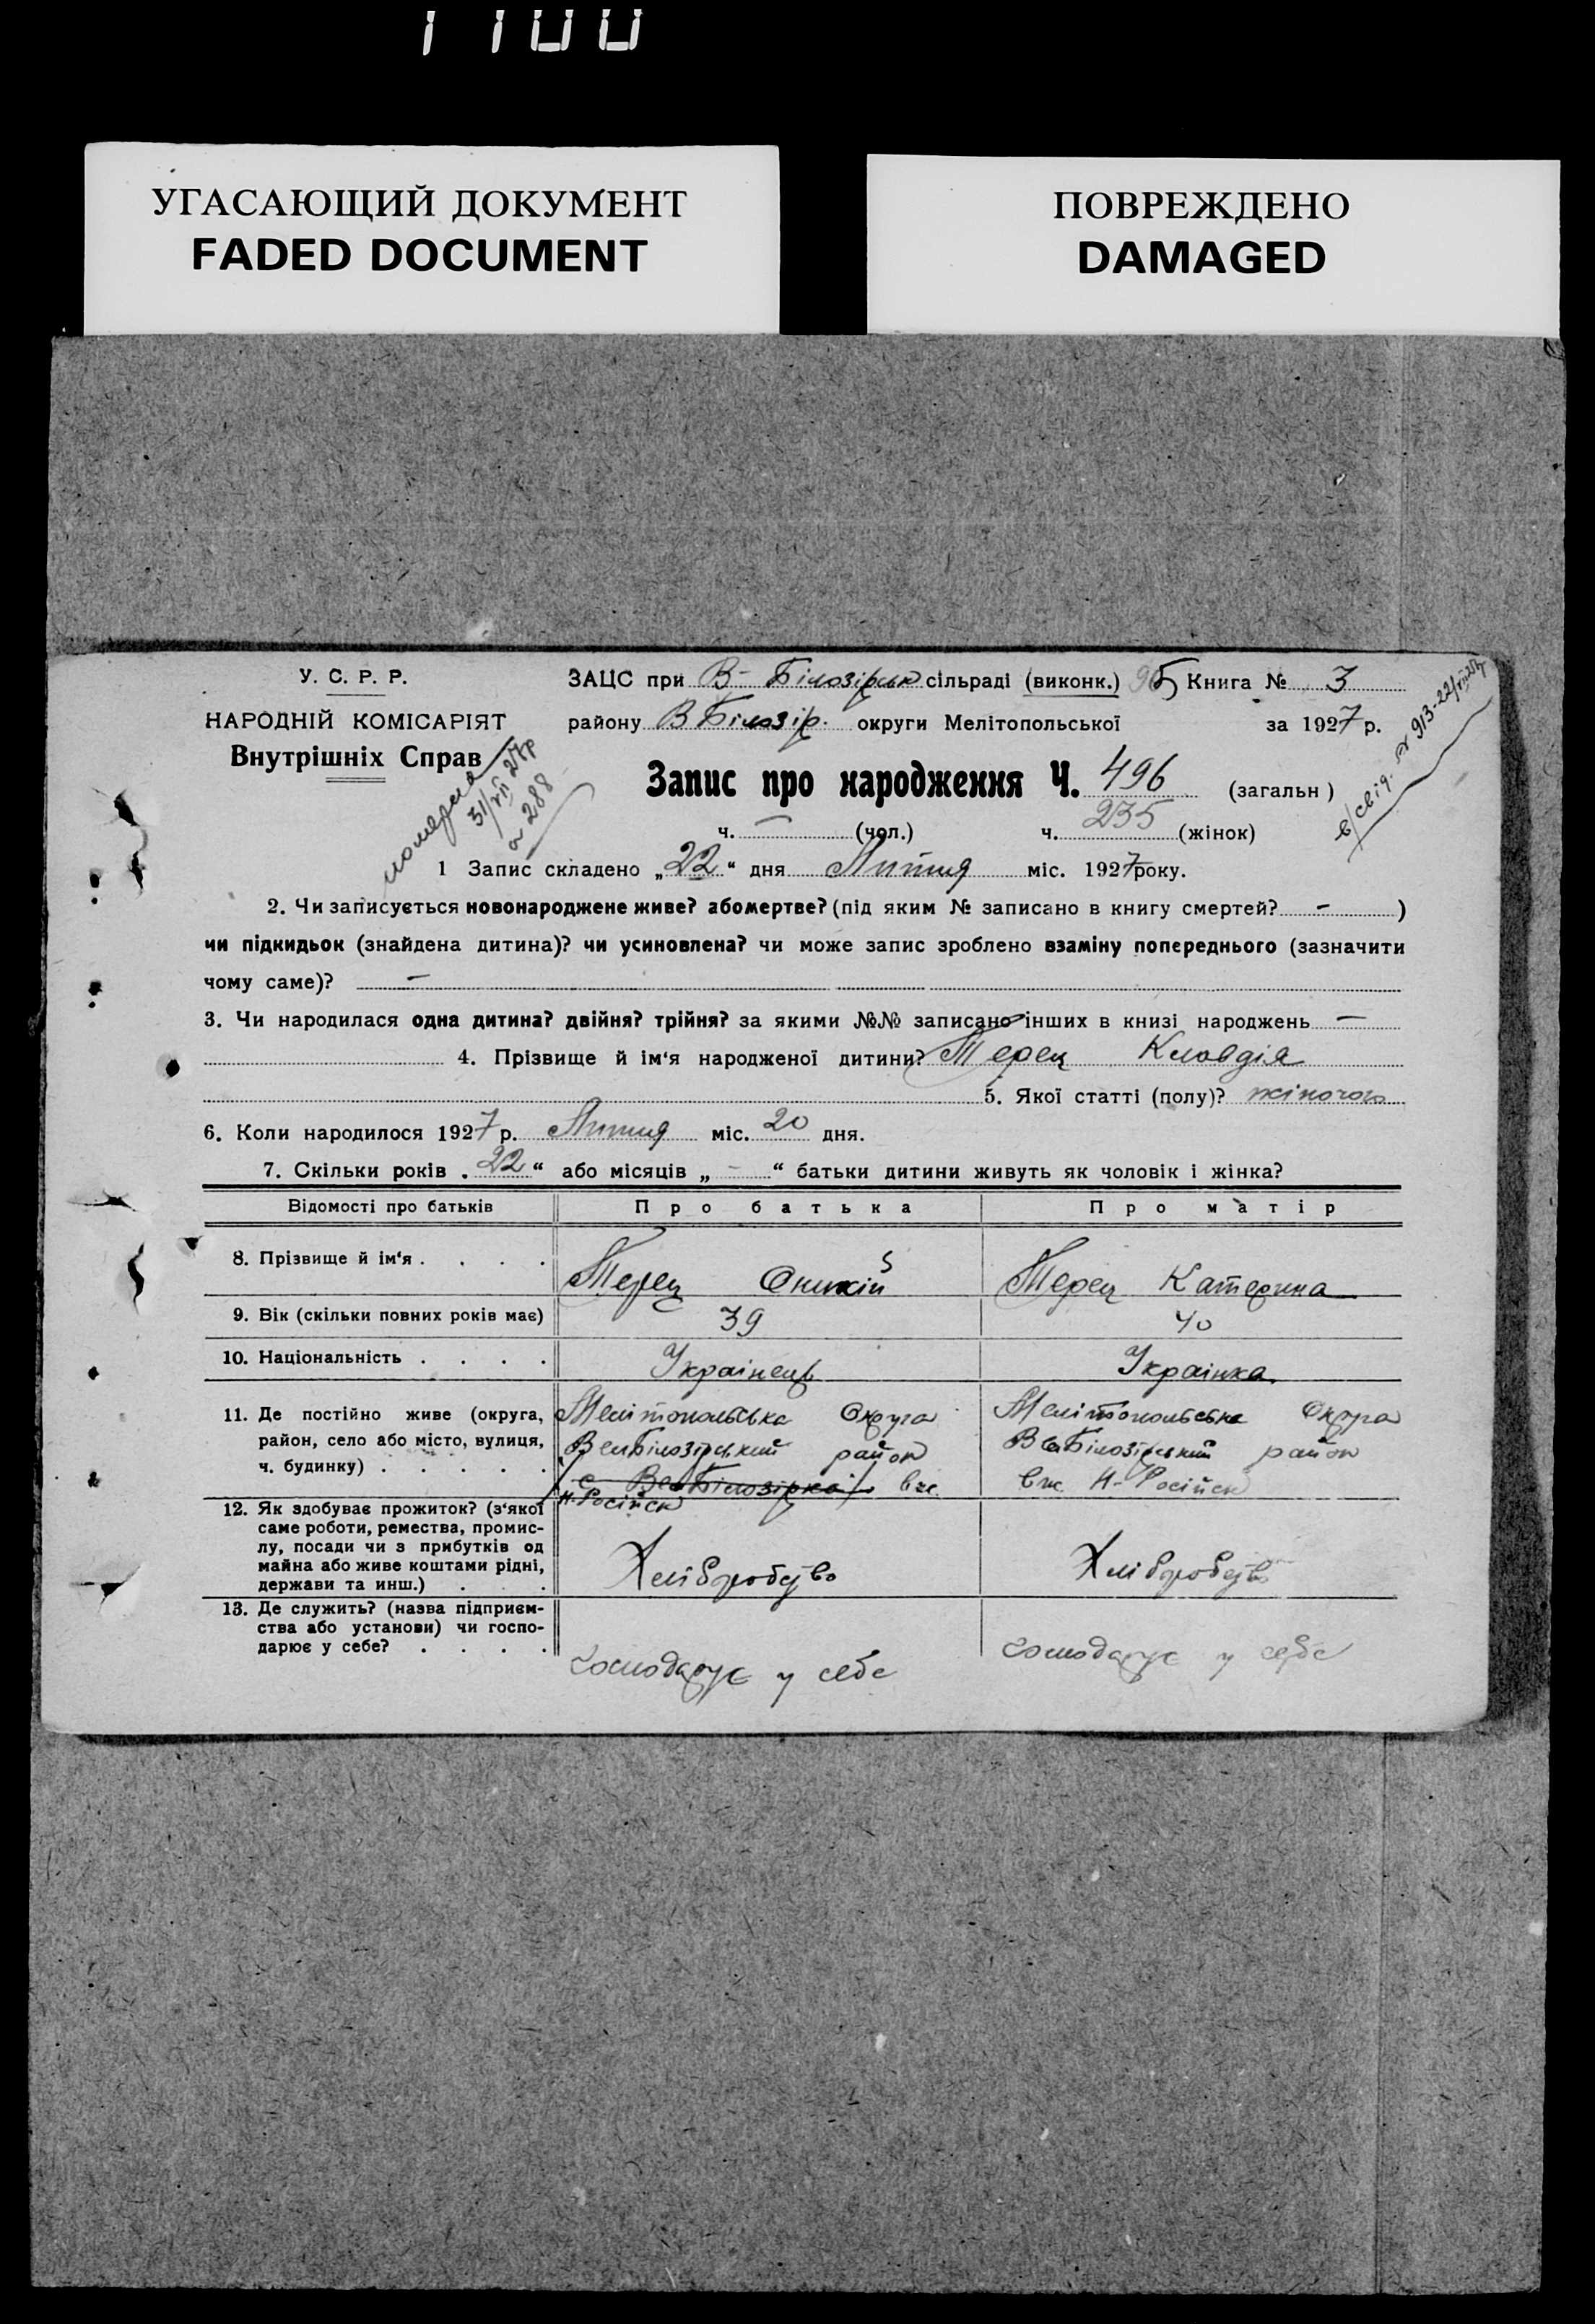 1 100
УГАСАЮЩИЙ ДОКУМЕНТ
FADED DOCUMENT
ПОВРЕЖДЕНО
DAMAGED
У. С. Р. Р.
НАРОДНІЙ КОМІСАРІЯТ
Внутрішніх Справ
ЗАЦС при В-Білозірськ сільраді (виконк.) Книга № 3
району В Білозір. округи Мелітопольської за 1927 р.
померла
31/VII 27р
№ 288
в/свід. № 913-22/VII 27р
Запис про народження Ч. 496 (загальн)
ч. — (чол.) ч. 235 (жінок)
1 Запис складено „22“ дня Липня міс. 1927 року.
2. Чи записується новонароджене живе? або мертве? (під яким № записано в книгу смертей? - )
чи підкидьок (знайдена дитина)? чи усиновлена? чи може запис зроблено взаміну попереднього (зазначити
чому саме)? —
3. Чи народилася одна дитина? двійня? трійня? за якими №№ записано інших в книзі народжень —
4. Прізвище й ім‘я народженої дитини? Терец Клавдія
5. Якої статті (полу)? жіночого
6. Коли народилося 1927 р. Липня міс. 20 дня.
7. Скільки років „22“ або місяців „ - “ батьки дитини живуть як чоловік і жінка?
Відомості про батьків Про батька Про матір
8. Прізвище й ім‘я . . . . Терец Терец Катерина
9. Вік (скільки повних років має) 39 40
10. Національність . . . . Украінець Украінка.
11. Де постійно живе (округа, Мелітопольська Округа Мелітопольська Округа
район, село або місто, вулиця, ВелБілозірський район ВелБілозірський район
ч. будинку) . . . . . с ВелБілозірка вис. вис. Н-Російск
Н-Російск
12. Як здобуває прожиток? (з‘якої
саме роботи, ремества, промис-
лу, посади чи з прибутків од
майна або живе коштами рідні, Хліборобство Хліборобство
держави та инш.) . . .
13. Де служить? (назва підприєм-
ства або установи) чи госпо-
дарює у себе? . . . . господарує у себе господарує у себе